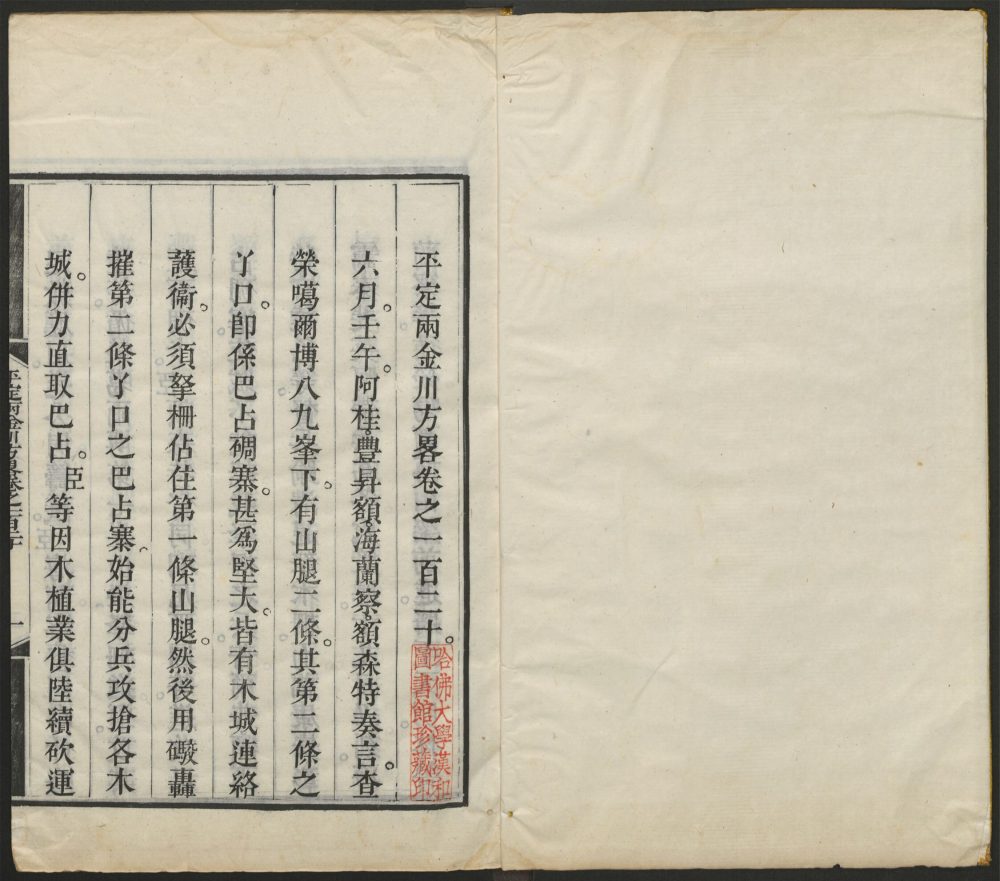 平定兩金川方畧卷之一百二十。
六月。壬午。阿桂。豐昇額。海蘭察。額森特奏言。查
榮噶爾博八九峯下。有山腿二條。其第二條之
丫口。卽係巴占碉寨。甚爲堅大。皆有木城連絡
護衞。必須拏柵佔住第一條山腿。然後用礮轟
摧第二條丫口之巴占寨。始能分兵攻搶各木
城。併力直取巴占。臣等因木植業俱陸續砍運
哈佛大學漢和
圖書館珍藏印
平定兩金川方畧卷之一百二十
一